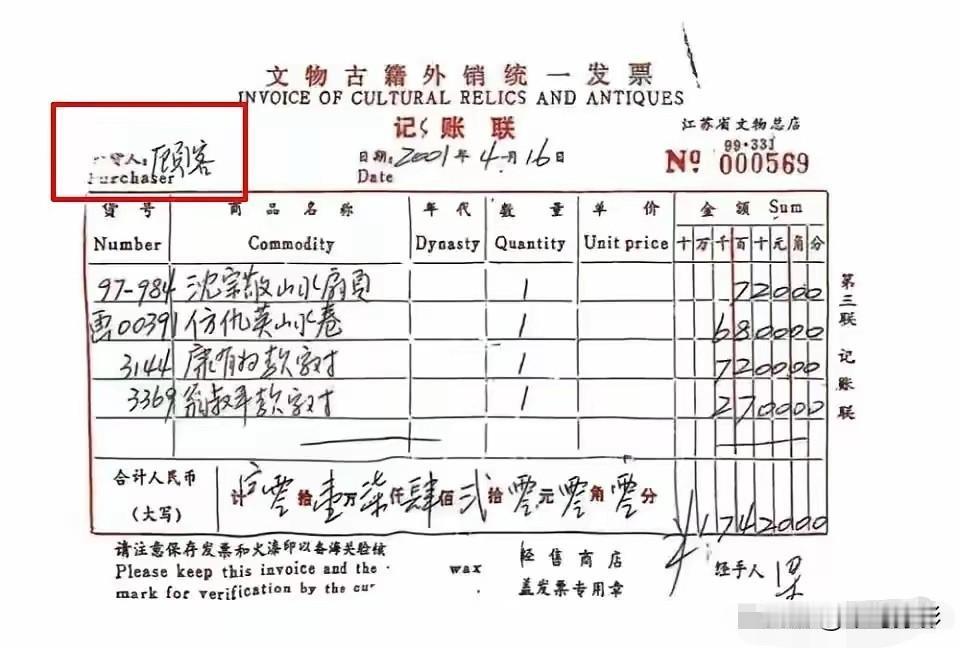 文物古籍外销统一发票
INVOICE OF CULTURAL RELICS AND ANTIQUES
记账联
江苏省文物总店
99·331
日期: 2001年4月16日
Date
Nº 000569
货人: 顾客
Purchaser
货号 商品名称 年代 数量 单价 金额 Sum
Number Commodity Dynasty Quantity Unit price 十万千百十元角分
97-984 沈宗敬山水扇页 1 72000
00391 仿仇英山水卷 1 680000
3144 康有为款字对 1 720000
3369 翁叔平款字对 1 270000
合计人民币
(大写)
计 零拾壹万柒仟肆佰贰拾零元零角零分 ¥1742000
第三联 记账联
请注意保存发票和火漆印以备海关验核
Please keep this invoice and the wax
mark for verification by the cu
经售商店
盖发票专用章
经手人